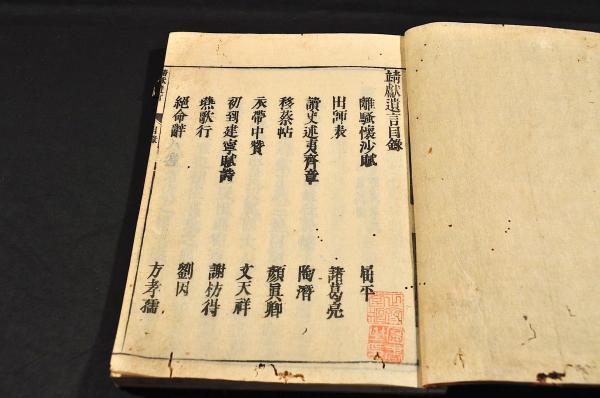 靖献遺言目録
離騒懐沙賦 屈平
出師表 諸葛亮
讀史述夷齊章 陶潛
移蔡帖 顏眞卿
衣帶中贊 文天祥
初到建寧賦詩 謝枋得
燕歌行 劉因
絕命辭 方孝孺